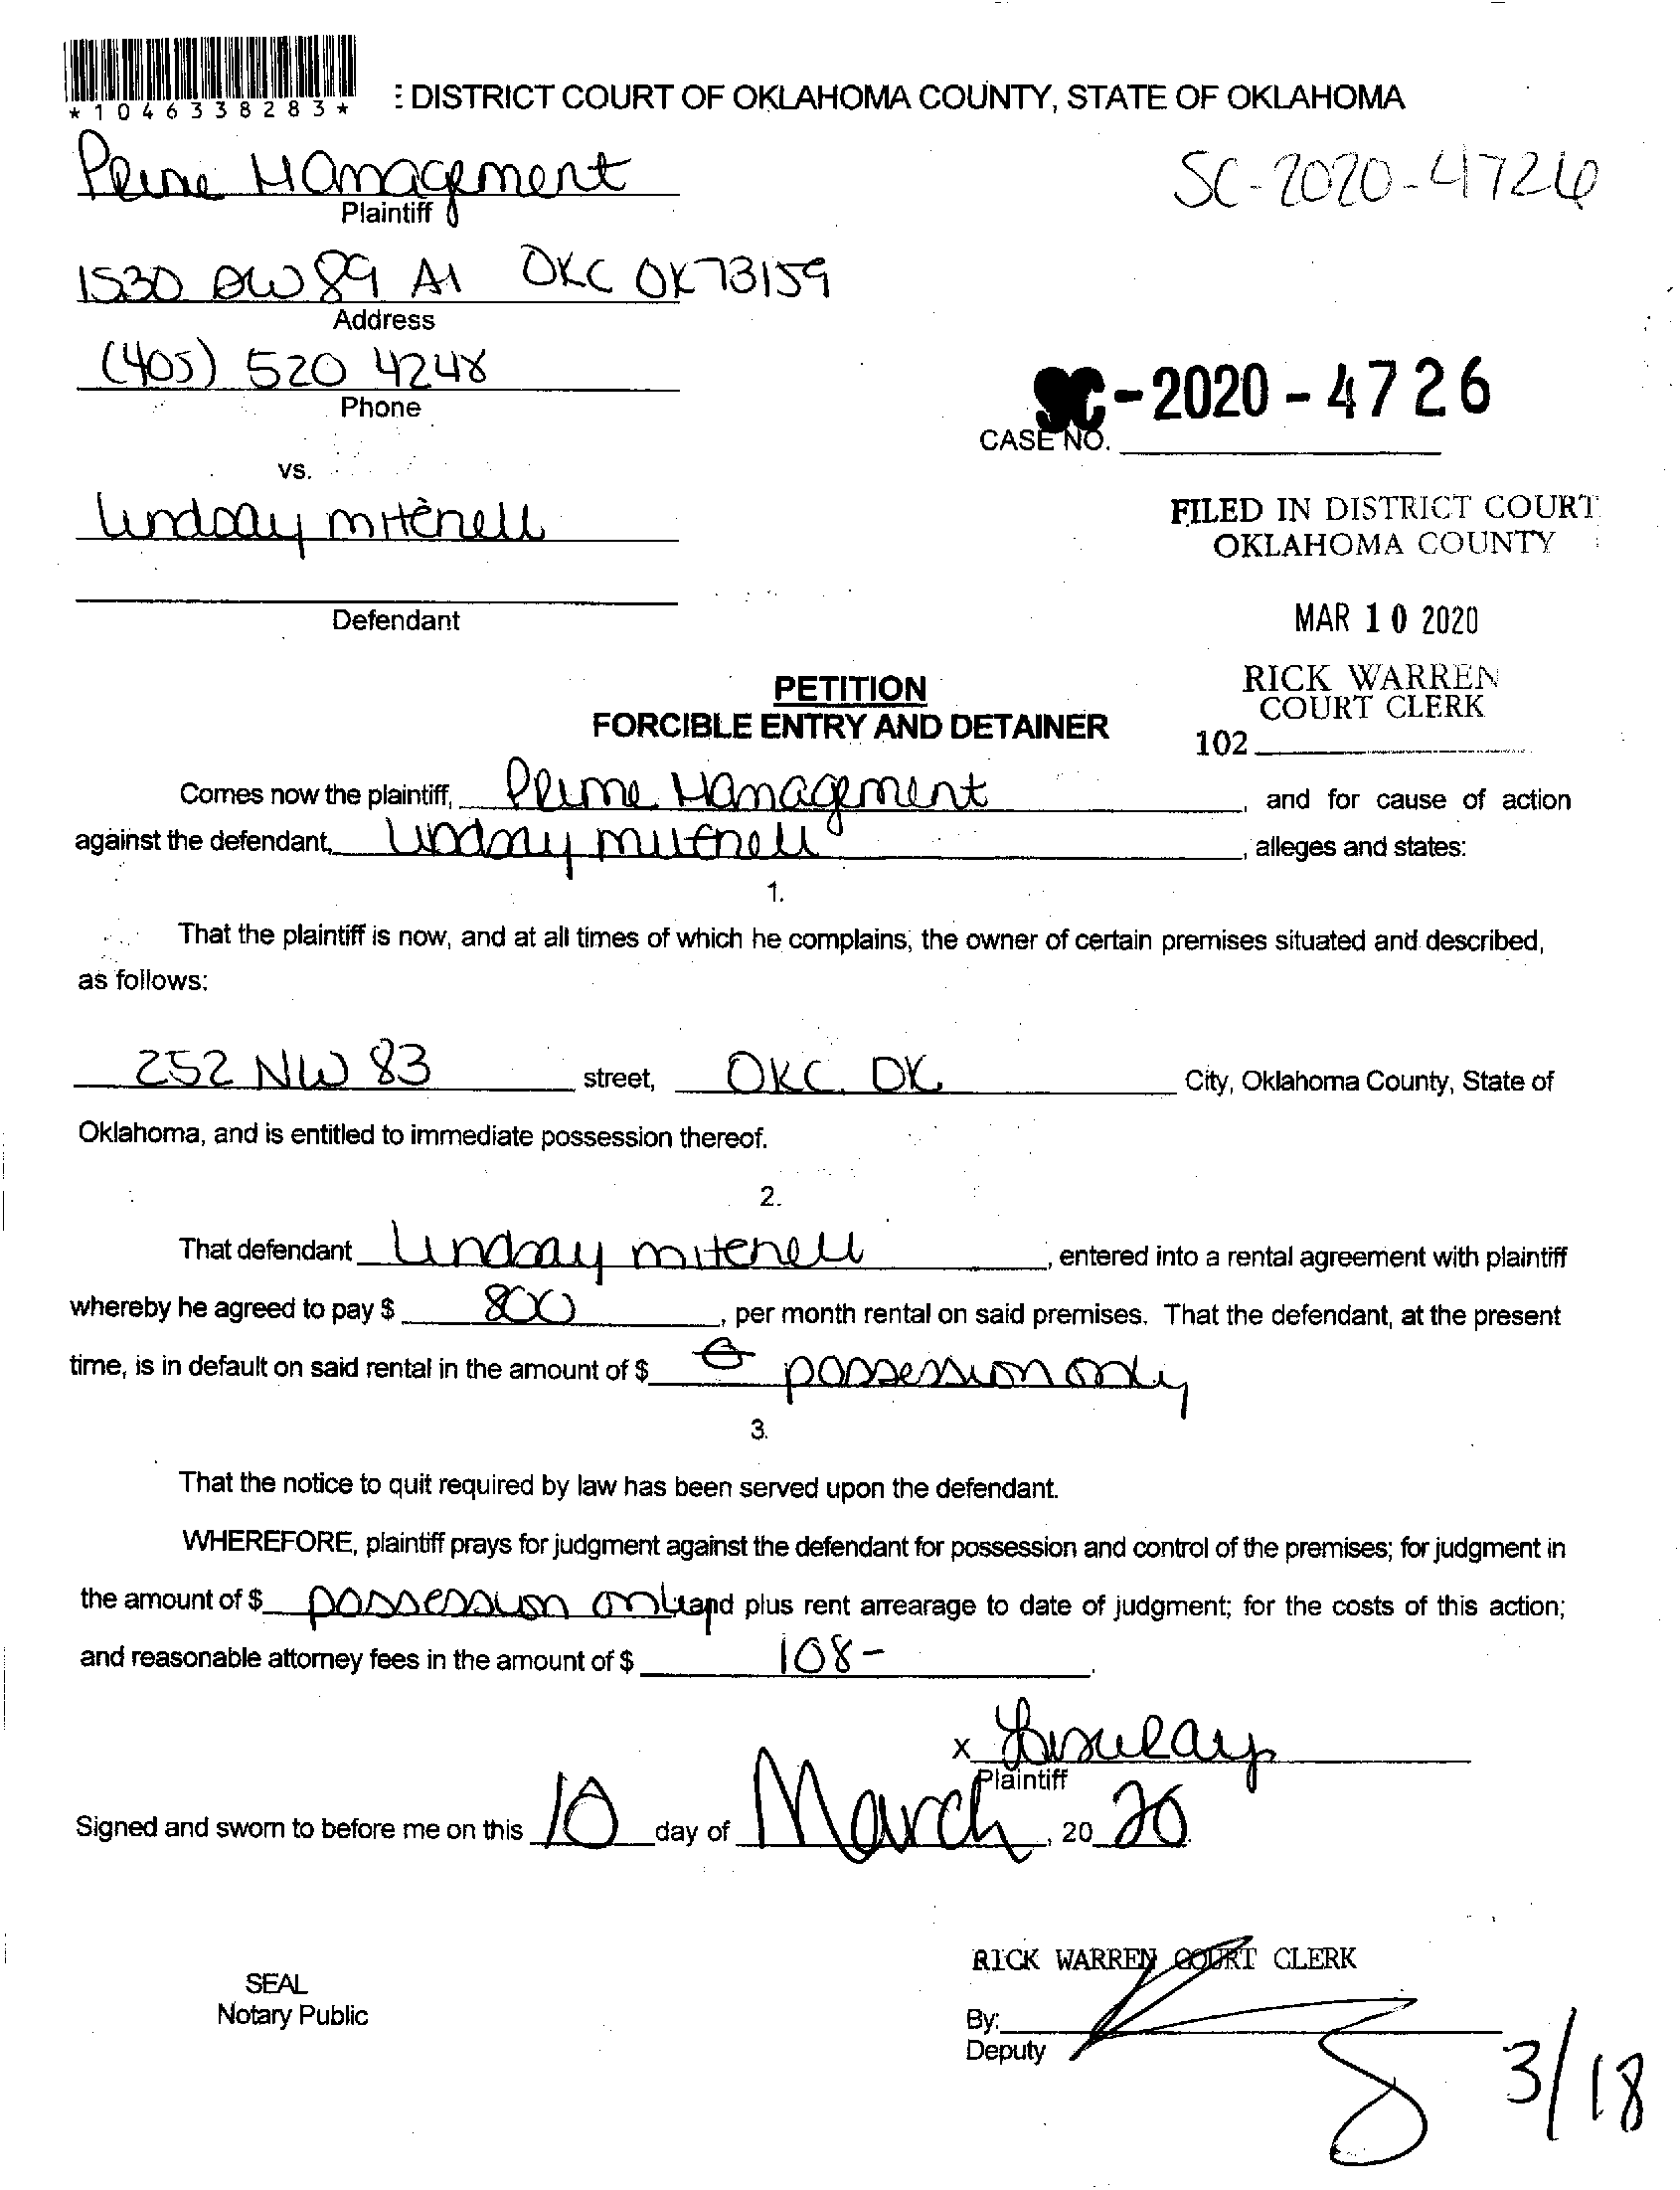 *1046338283*
: DISTRICT COURT OF OKLAHOMA COUNTY, STATE OF OKLAHOMA
Prime Management
SC-2020-4726
Plaintiff
1530 SW 89 A1 OKC OK 73159
Address
(405) 520 4248
Phone
SC-2020-4726
CASE NO.
vs.
Lindsay Mitchell
FILED IN DISTRICT COURT
OKLAHOMA COUNTY
Defendant
MAR 10 2020
PETITION
FORCIBLE ENTRY AND DETAINER
RICK WARREN
COURT CLERK
102
Comes now the plaintiff, Prime Management, and for cause of action
against the defendant, Lindsay Mitchell, alleges and states:
1.
That the plaintiff is now, and at all times of which he complains, the owner of certain premises situated and described,
as follows:
252 NW 83 street, OKC, OK City, Oklahoma County, State of
Oklahoma, and is entitled to immediate possession thereof.
2.
That defendant Lindsay Mitchell, entered into a rental agreement with plaintiff
whereby he agreed to pay $ 800, per month rental on said premises. That the defendant, at the present
time, is in default on said rental in the amount of $ possession only
3.
That the notice to quit required by law has been served upon the defendant.
WHEREFORE, plaintiff prays for judgment against the defendant for possession and control of the premises; for judgment in
the amount of $ possession only and plus rent arrearage to date of judgment; for the costs of this action;
and reasonable attorney fees in the amount of $ 108-.
X
Plaintiff
Signed and sworn to before me on this 10 day of March, 20 20.
RICK WARREN COURT CLERK
SEAL
Notary Public
By:
Deputy
3/18